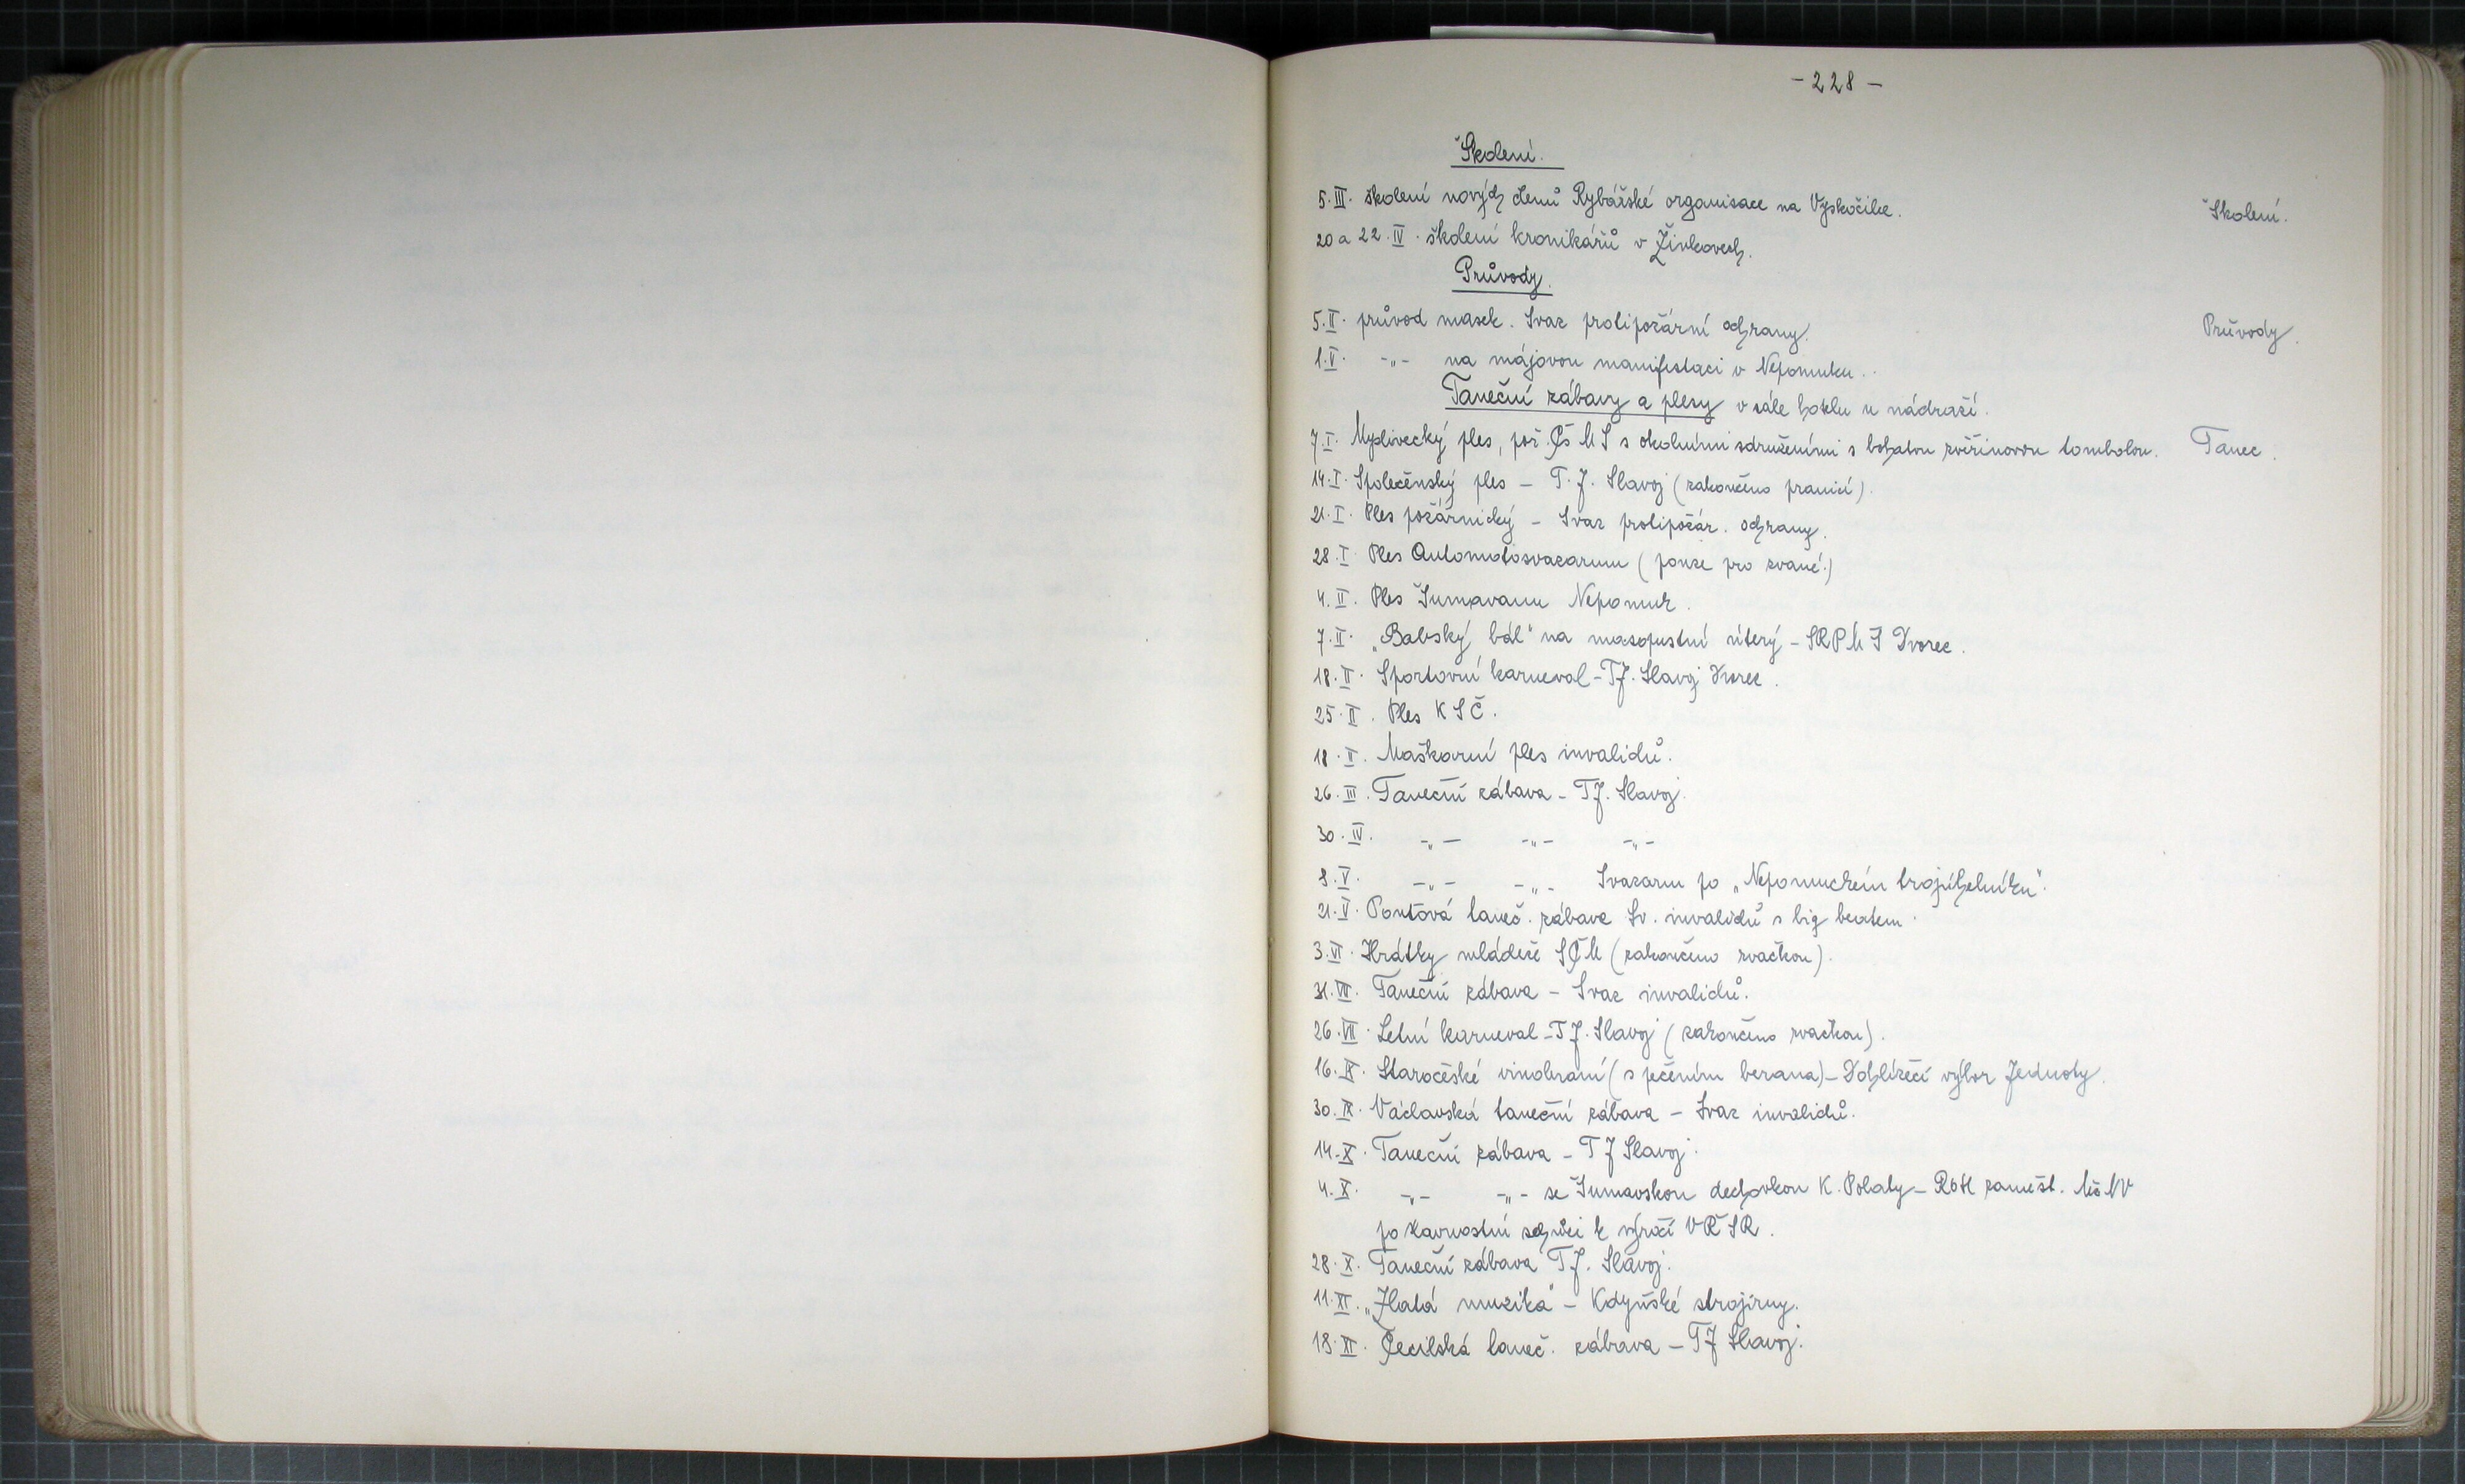 - 228 -
Školení.
5.III. školení nových členů Rybářské organisace na Vyskočilce.
Školení.
20 a 22.IV. školení kronikářů v Žinkovech.
Průvody.
5.II. průvod masek. Svaz protipožární ochrany.
Průvody.
1.V. -„- na májovou manifestaci v Nepomuku.
Taneční zábavy a plesy v sále hotelu u nádraží.
7.I. Myslivecký ples, poř. ČS MS s okolními sdruženími s bohatou zvěřinovou tombolou.
Tanec.
14.I. Společenský ples - T.J. Slavoj (zakončeno pranicí).
21.I. Ples požárnický - Svaz protipožár. ochrany.
28.I. Ples Automotosvazarmu (pouze pro zvané.)
4.II. Ples Šumavanu Nepomuk.
7.II. „Babský bál" na masopustní úterý - SRPMŠ Dvorec.
18.II. Sportovní karneval - TJ. Slavoj Dvorec.
25.II. Ples KSČ.
18.II. Maškarní ples invalidů.
26.III. Taneční zábava - TJ. Slavoj.
30.IV. -„- -„- -„-
8.V. -„- -„- Svazarm po „Nepomuckém trojúhelníku".
21.V. Pouťová taneč. zábava Sv. invalidů s big beatem.
3.VI. Hrátky mládeže SČM (zakončeno rvačkou).
31.VII. Taneční zábava - Svaz invalidů.
26.VII. Letní karneval - TJ. Slavoj (zakončeno rvačkou).
16.IX. Staročeské vinobraní (s pečením berana) - Dohlížecí výbor Jednoty.
30.IX. Václavská taneční zábava - Svaz invalidů.
14.X. Taneční zábava - TJ Slavoj.
4.X. -„- -„- se Šumavskou dechovkou K. Polaty - ROH zaměst. MěNV
po slavnostní schůzi k výročí VŘSR.
28.X. Taneční zábava TJ. Slavoj.
11.XI. „Zlatá muzika" - Kdyňské strojírny.
18.XI. Cecilská taneč. zábava - TJ Slavoj.